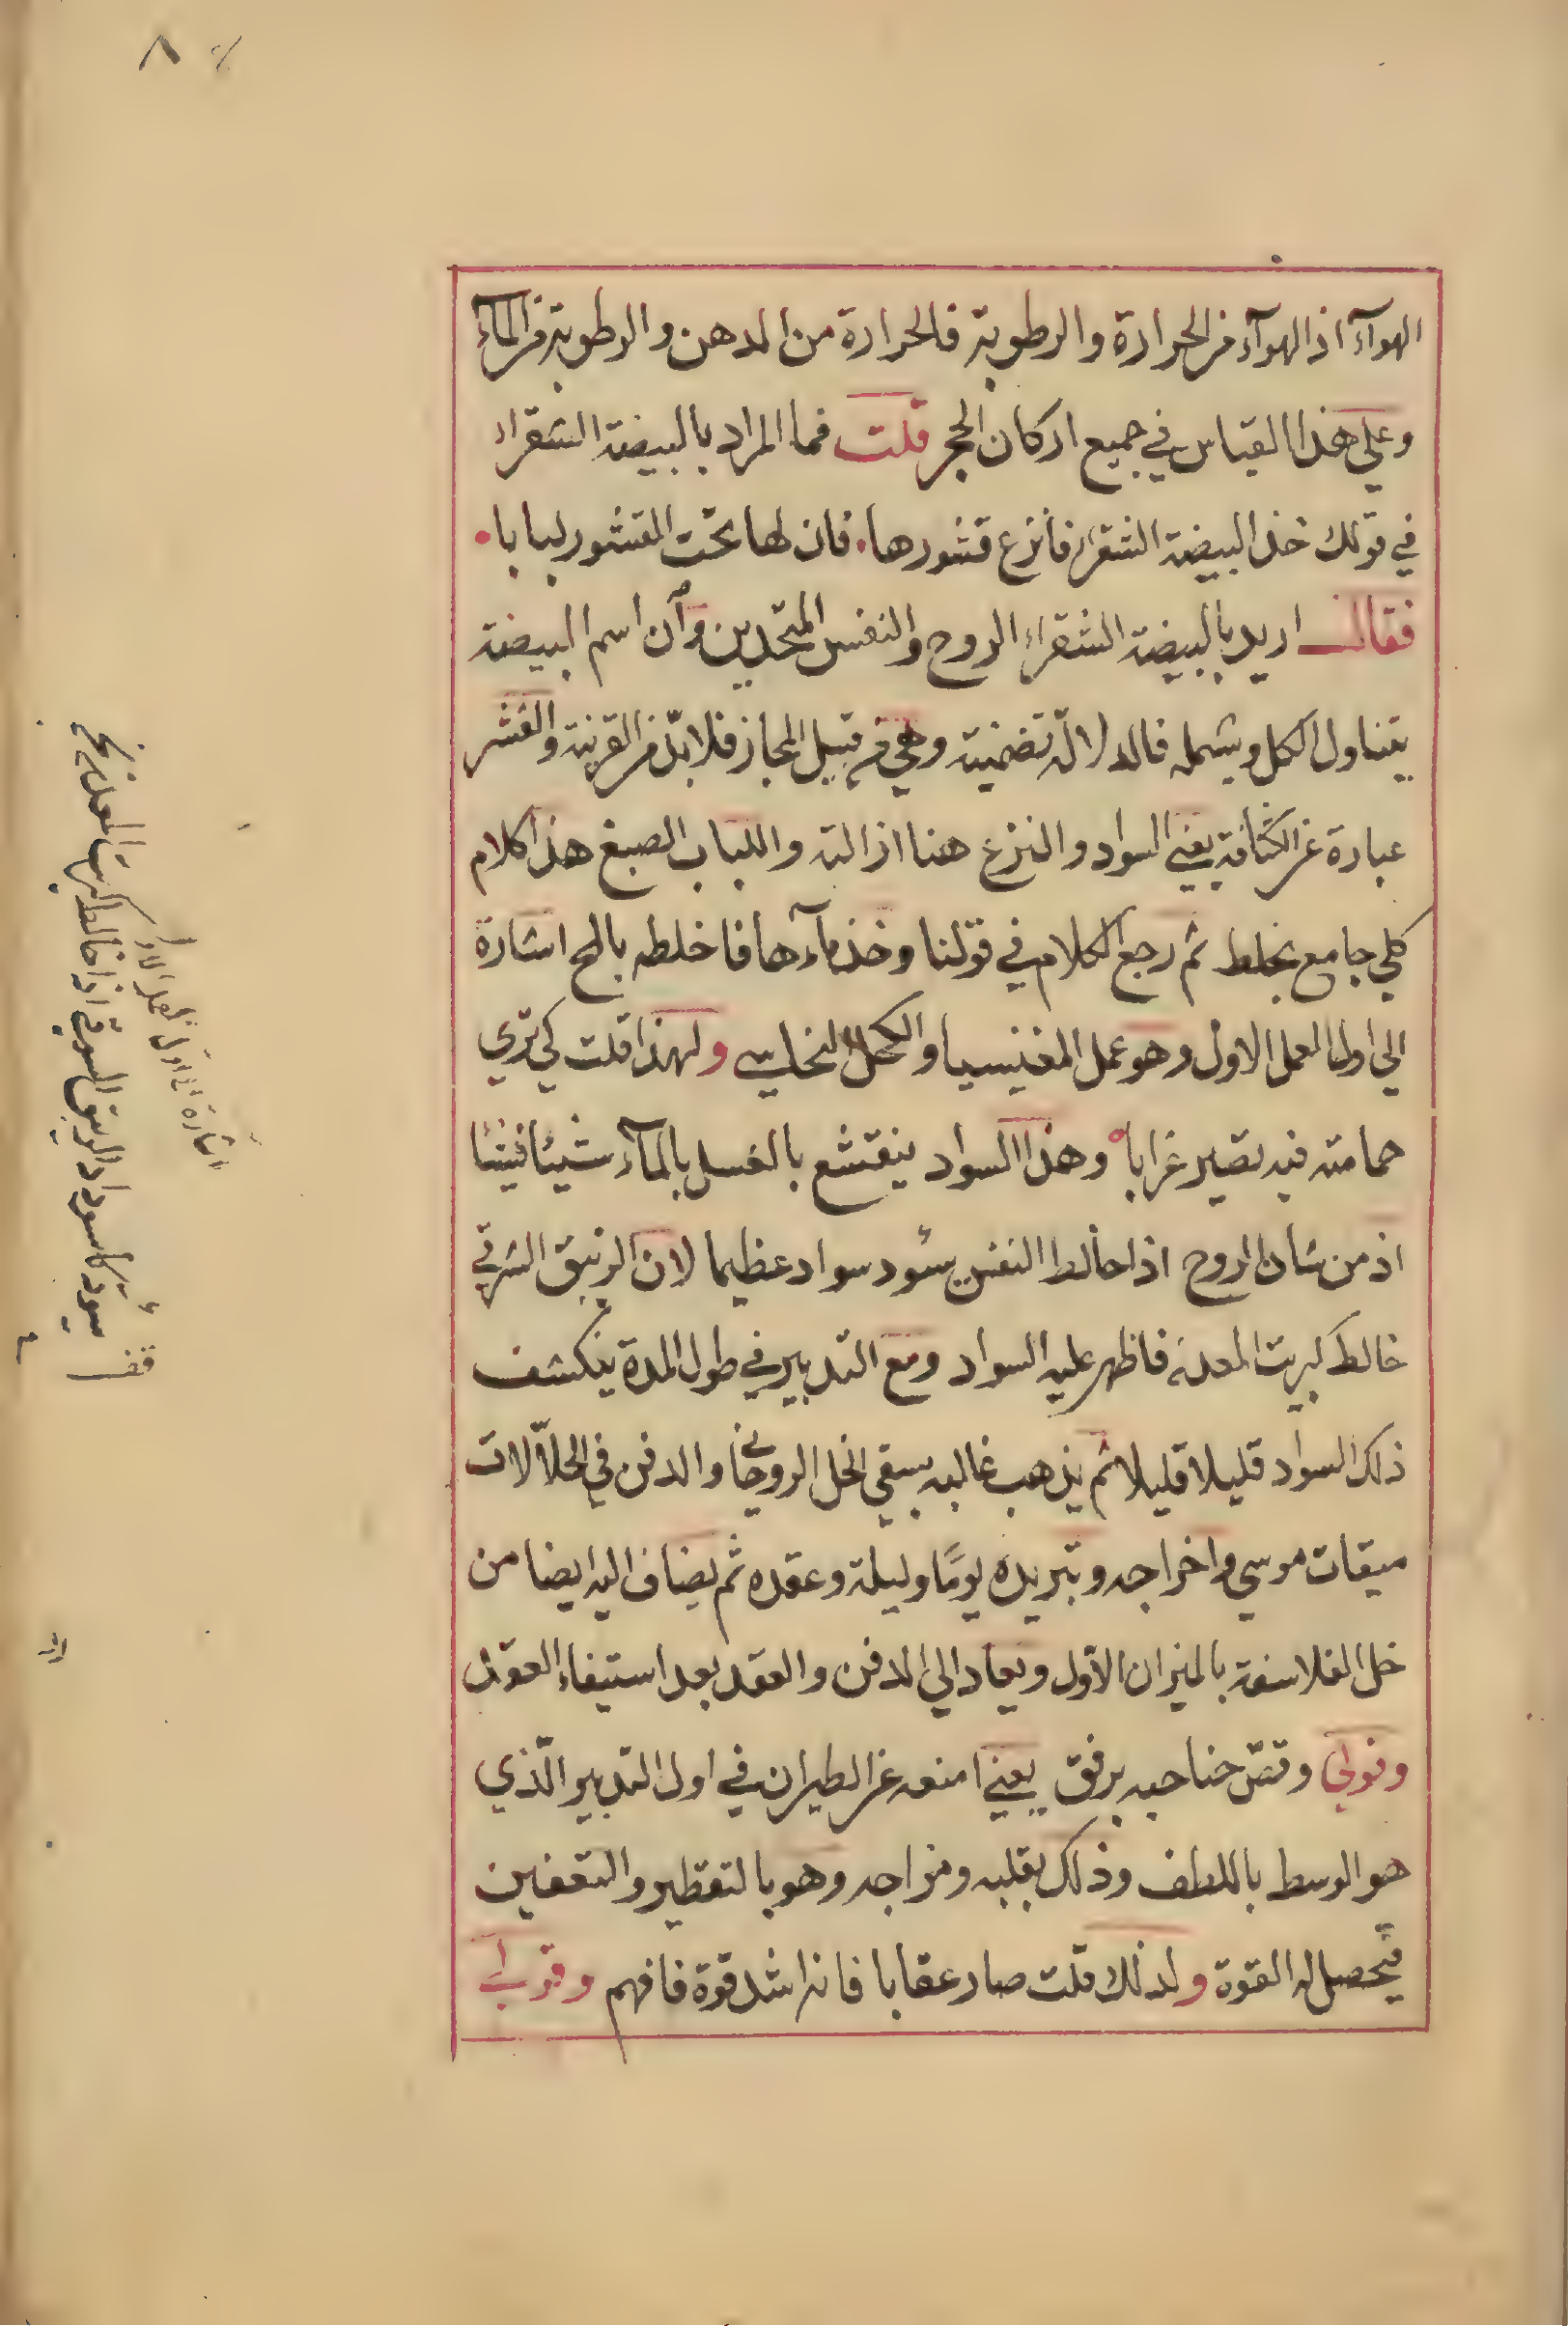 ٨
الهوآء اذ الهوآء من الحرارة والرطوبة فالحرارة من الدهن والرطوبة من المآء
وعلي هذا القياس في جميع اركان الحجر قلت فما المراد بالبيضة الشقراء
في قولك خذ البيضة الشقرا فانزع قشورها فان لها تحت القشور لبابا
فقال اريد بالبيضة الشقراء الروح والنفس المتحدين وان اسم البيضة
يتناول الكل ويشمله فالدلالة تضمنية وهي من قبيل المجاز فلا بدّ من القرينة والقشر
عبارة عن الكثافة يعني السواد والنزع هنا ازالته واللباب الصبغ هذا كلام
كلي جامع بخلط ثم رجع الكلام في قولنا وخذ مآءها فاخلطه بالمح اشارة
الي اول العمل الاول وهو عمل المغنيسيا والكحل النحاسي ولهذا قلت كي تري
حمامته فيه تصير غرابا وهذا السواد ينقشع بالغسل بالمآء شيئا فشيئا
اذ من شان الروح اذا خالط النفس يسود سواد عظيما لان الزيبق الشرقي
خالط كبريت المعدن فاظهر عليه السواد ومع التدبير في طول المدة ينكشف
ذلك السواد قليلا قليلا ثم يذهب غالبه بسقي الخل الروحاني والدفن في الحلاّلات
ميقات موسي واخراجه وتبريده يومًا وليلة وعقده ثم يضاف اليه ايضا من
خل الفلاسفة بالميزان الاول ويعاد الي الدفن والعقد بعد استيفاء العقد
وقولي وقصّ جناحيه برفق يعني امنعه عن الطيران في اول التدبير الّذي
هو الوسط باللطف وذلك بقلبه ومزاجه وهو بالتقطير والتعفين
فيحصل له القوة ولذلك قلت صار عقابا فانه اشد قوة فافهم وقولي
اشارة الي اول العمل الاول